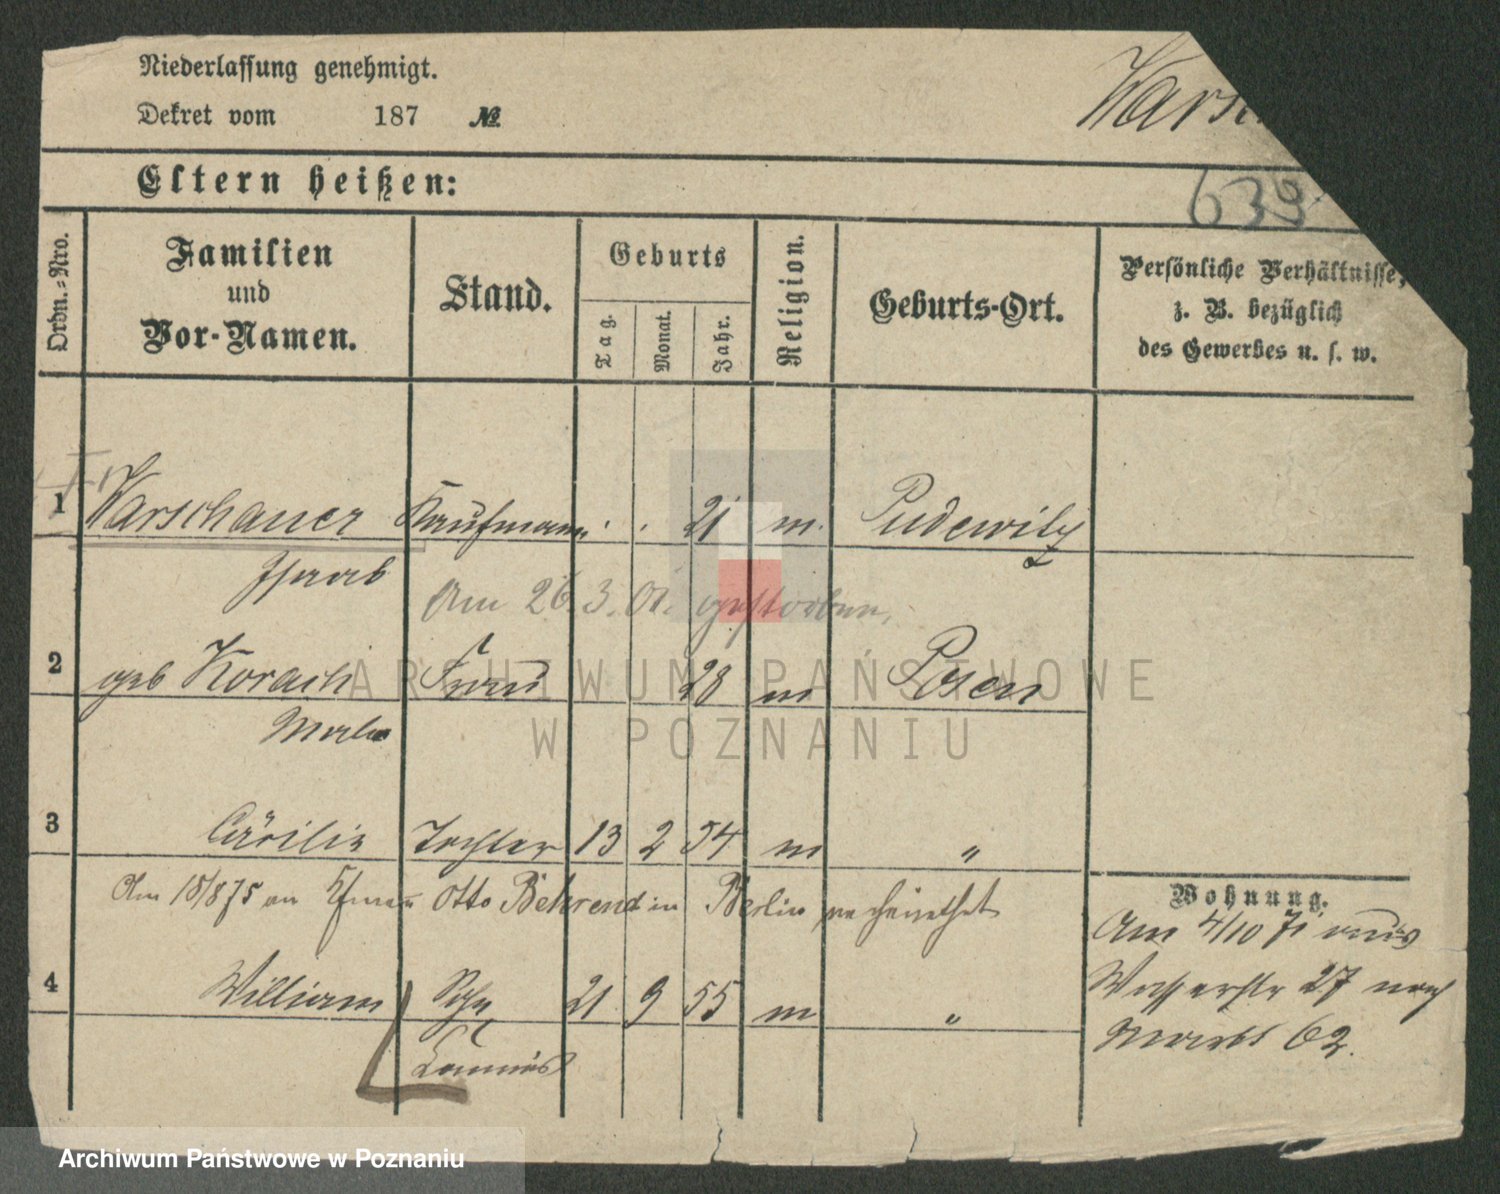 Niederlassung genehmigt.
Dekret vom 187 №
Warsch
Eltern heißen:
639
Ordn.-Nro.
Familien
und
Vor-Namen.
Stand.
Geburts
Tag.
Monat.
Jahr.
Religion.
Geburts-Ort.
Persönliche Verhältnisse,
z. B. bezüglich
des Gewerbes u. s. w.
1 Warschauer Kaufmann 21 m. Pudewitz
Isaak
Am 26.3.01. gestorben.
2 geb Korach Frau 28 m Posen
Malw
3 Cäcilie Tochter 13 2 54 m "
Am 18/8 75 an Kfman Otto Behrend in Berlin verheirathet
4 William Sohn 21 9 55 m "
Wohnung.
Am 4/10 71 aus
Wasserstr 27 nach
Markt 62.
ARCHIWUM PAŃSTWOWE
W POZNANIU
Archiwum Państwowe w Poznaniu